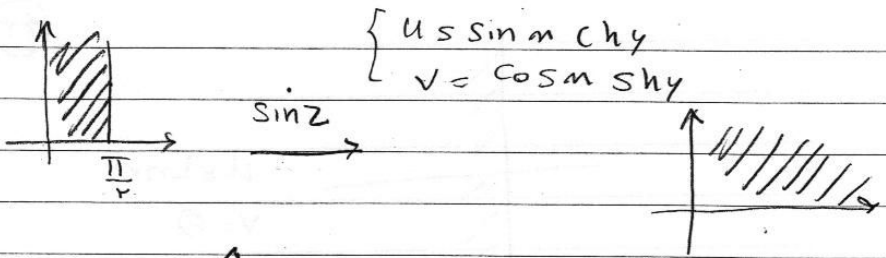 u = sin x chy
v = cos x shy
sin z
π/۲